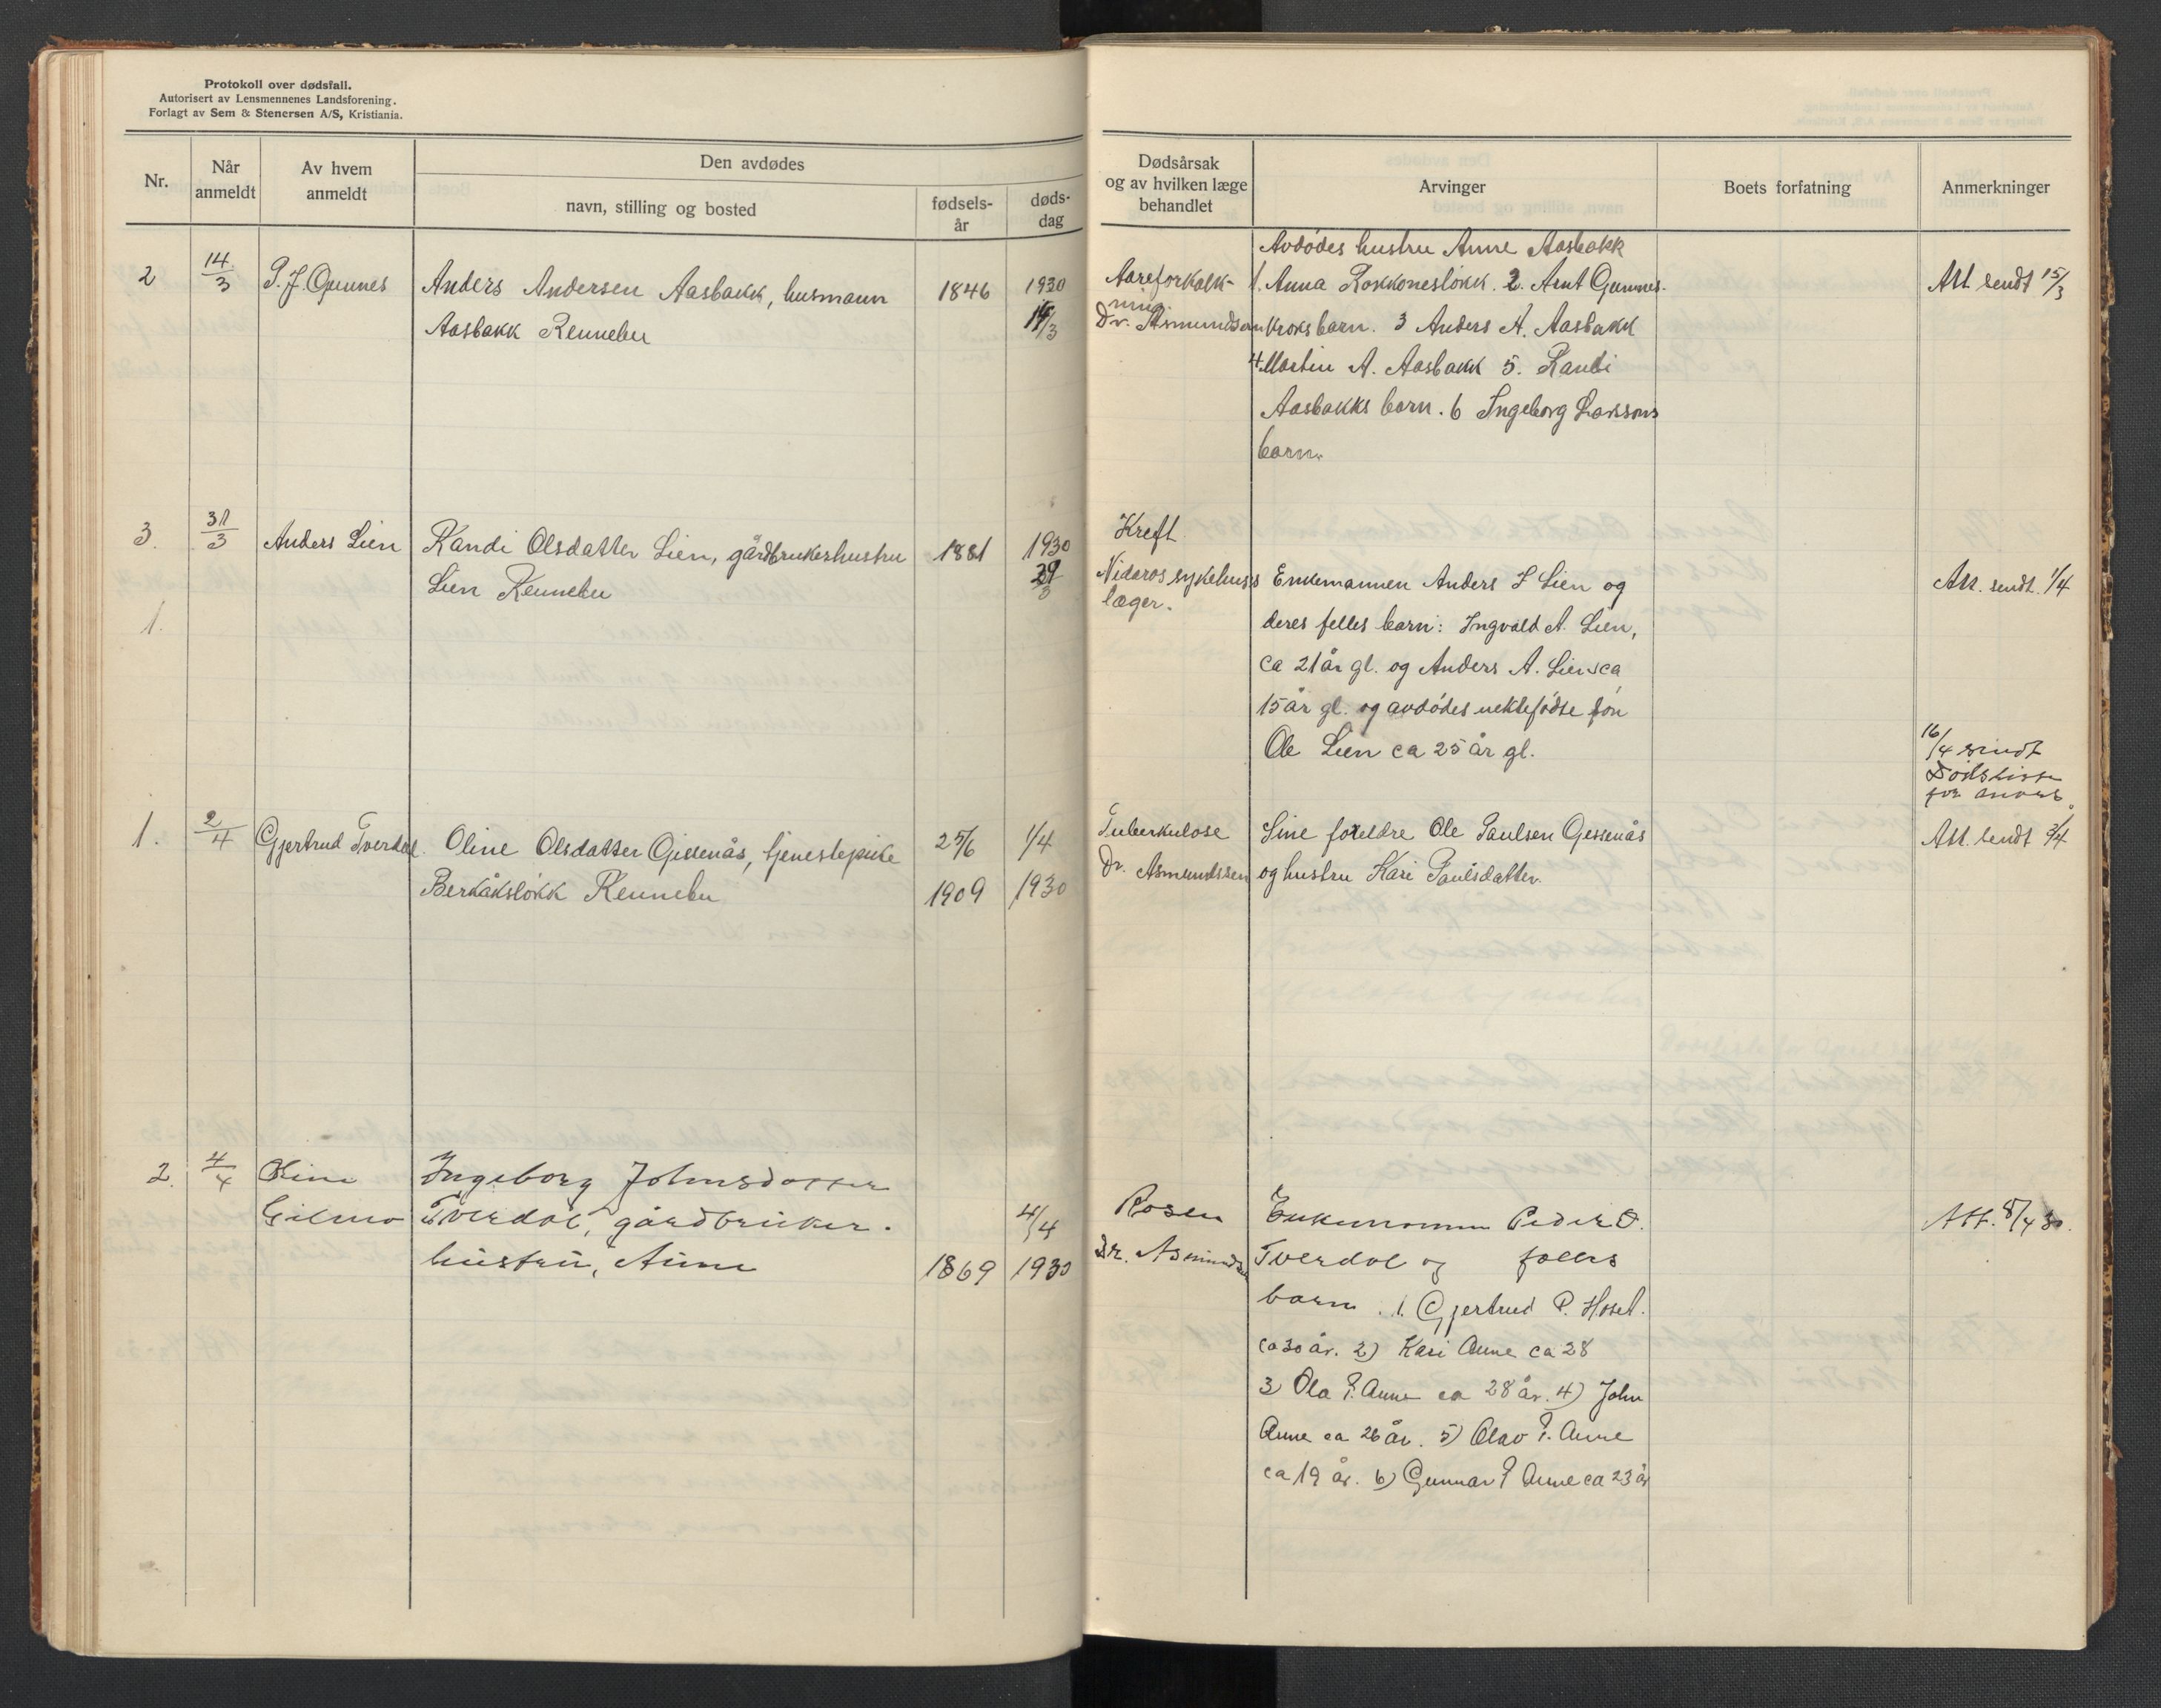 Protokoll over dødsfall.
Autorisert av Lensmennenes Landsforening.
Forlagt av Sem & Stenersen A/S, Kristiania.
Nr.
Når anmeldt
Av hvem anmeldt
Den avdødes
navn, stilling og bosted
fødsels-år
døds-dag
Dødsårsak
og av hvilken læge
behandlet
Arvinger
Boets forfatning
Anmerkninger
2
14/3
P. J. Gunnes
Anders Andersen Aasbakk, husmann
Aasbakk Rennebu
1846
1930
14/3
Aareforkalk-
ning.
Dr. Asmundsen
Avdødes hustru Anne Aasbakk
1. Anna Rokkonesløkk. 2. Arnt Gunnes-
kroks barn. 3 Anders A. Aasbakk
4 Martin A. Aasbakk 5. Randi
Aasbakks barn. 6 Ingeborg Larssons
barn.
Att. sendt 15/3
3.
31/3
Anders Lien
Randi Olsdatter Lien, gårdbrukerhustru
Lien Rennebu
1881
1930
29/3
Kreft
Nidaros sykehus's
læger.
Enkemannen Anders J Lien og
deres felles barn: Ingvald A. Lien,
ca 21 år gl. og Anders A. Lien ca
15 år gl. og avdødes uektefødte søn
Ole Lien ca 25 år gl.
Att. sendt. 1/4
1.
16/4 sendt
Dødsliste
for
1.
2/4
Gjertrud Tverdal
Oline Olsdatter Gissenås, tjenestepike
Berkåksløkk Rennebu
25/6
1909
1/4
1930
Tuberkulose
Dr. Asmundssen
Sine foreldre Ole Paulsen Gessenås
og hustru Kari Paulsdatter.
Att. sendt 3/4
2.
4/4
Oline
Gilmo
Ingeborg Johnsdatter
Tverdal, gårdbruker-
hustru, Aune
1869
4/4
1930
Rosen
Dr. Asmundsen
Enkemannen Peder O.
Tverdal og felles
barn. 1. Gjertrud P. Hoset.
ca 30 år. 2) Kari Aune ca 28
3) Ola P. Aune ca 28 år. 4) John
Aune ca 26 år. 5) Olav P. Aune
ca 19 år. 6) Gunnar P Aune ca 23 år
Att. 8/4 30.